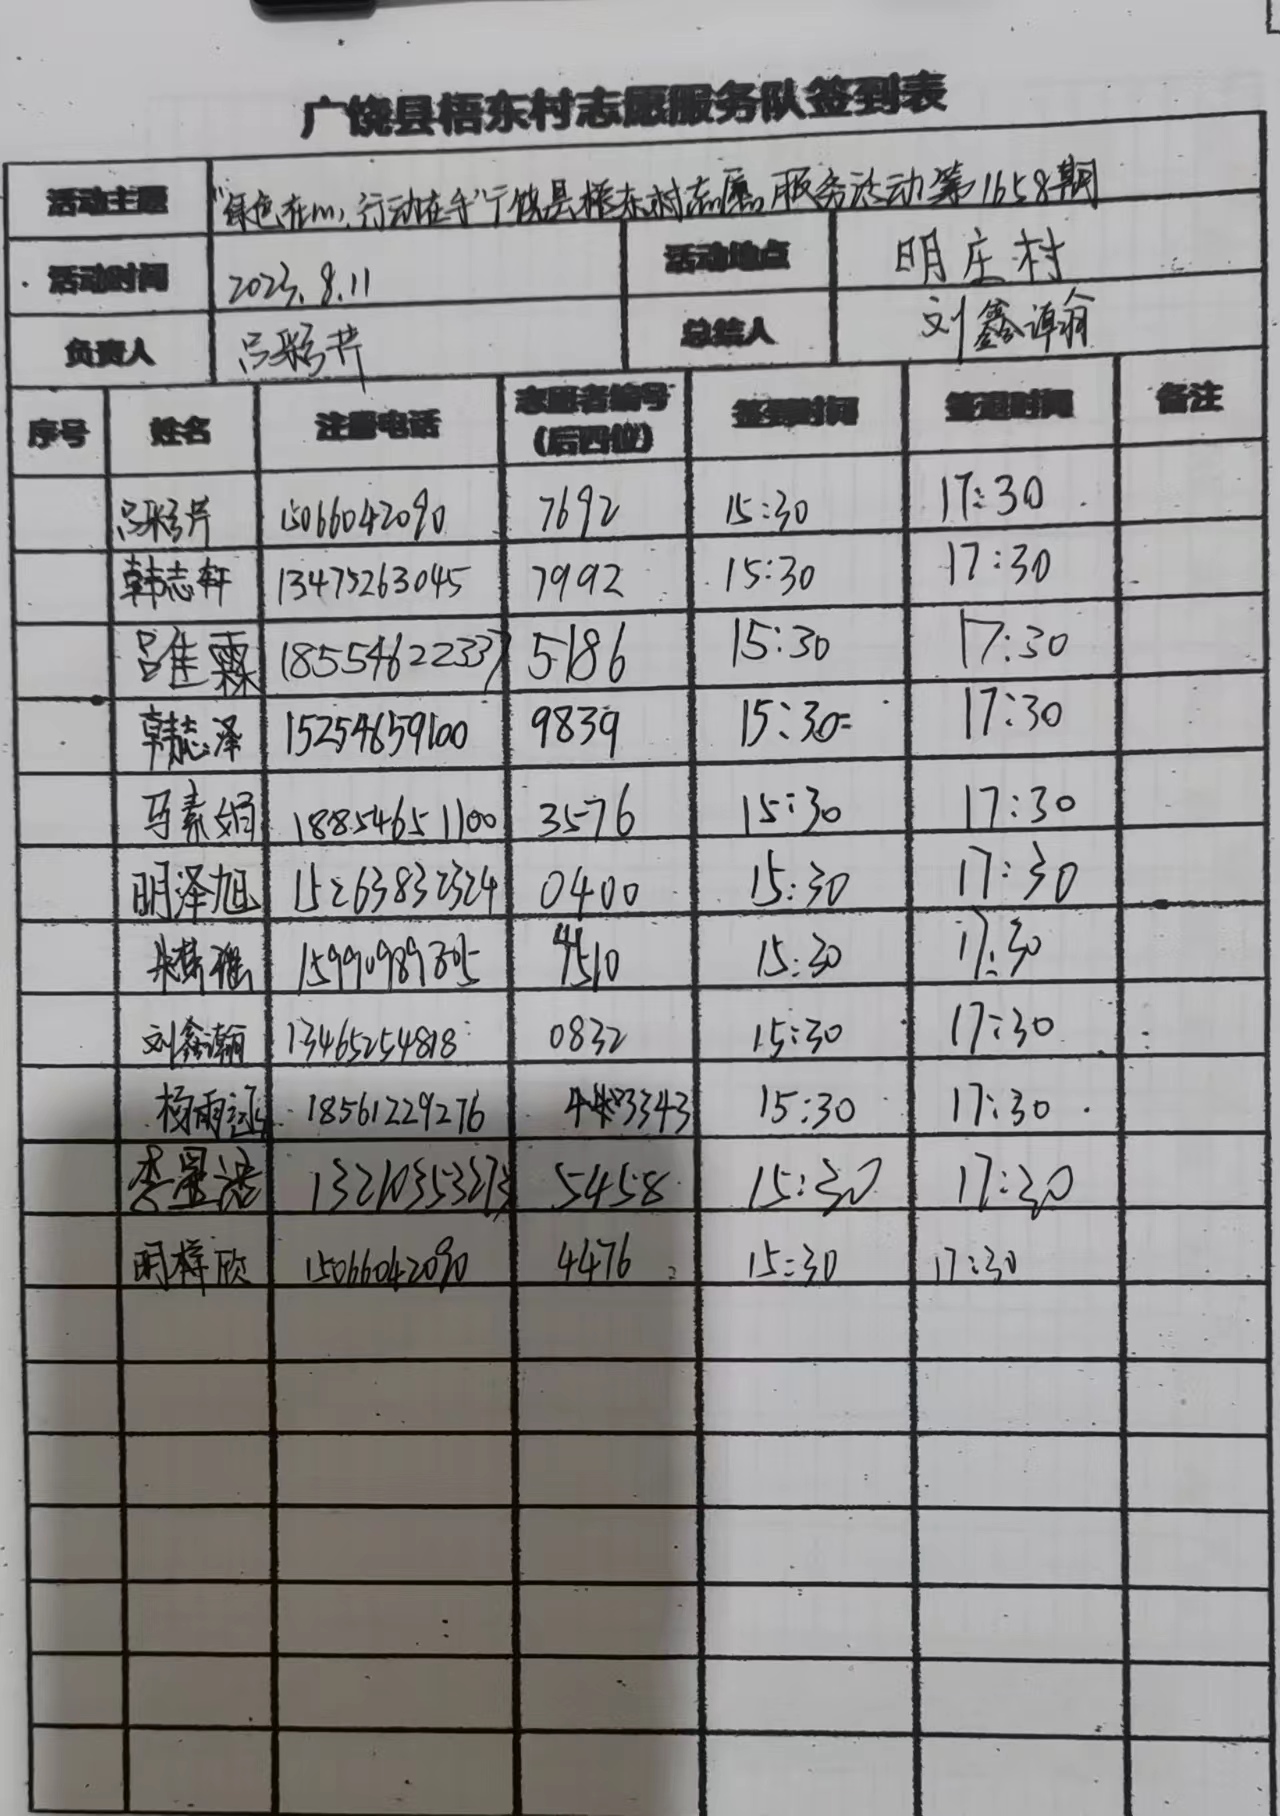 广饶县梧东村志愿服务队签到表
活动主题 "绿色在心,行动在手"广饶县梧东村志愿服务活动第1658期
活动时间 2023.8.11 活动地点 明庄村
负责人 吕彩芹 总结人 刘鑫瀚
序号 姓名 注册电话 志愿者编号(后四位) 签到时间 签退时间 备注
吕彩芹 15066042090 7692 15:30 17:30
韩志轩 13475263045 7992 15:30 17:30
吕佳霖 18554622337 5186 15:30 17:30
韩志泽 15254659100 9839 15:30 17:30
马素娟 18854651100 3576 15:30 17:30
明泽旭 15263832324 0400 15:30 17:30
4510 15:30 17:30
刘鑫瀚 13465254818 0832 15:30 17:30
杨雨涵 18561229276 3343 15:30 17:30
李星诺 13210353273 5458 15:30 17:30
明梓欣 15066042090 4476 15:30 17:30